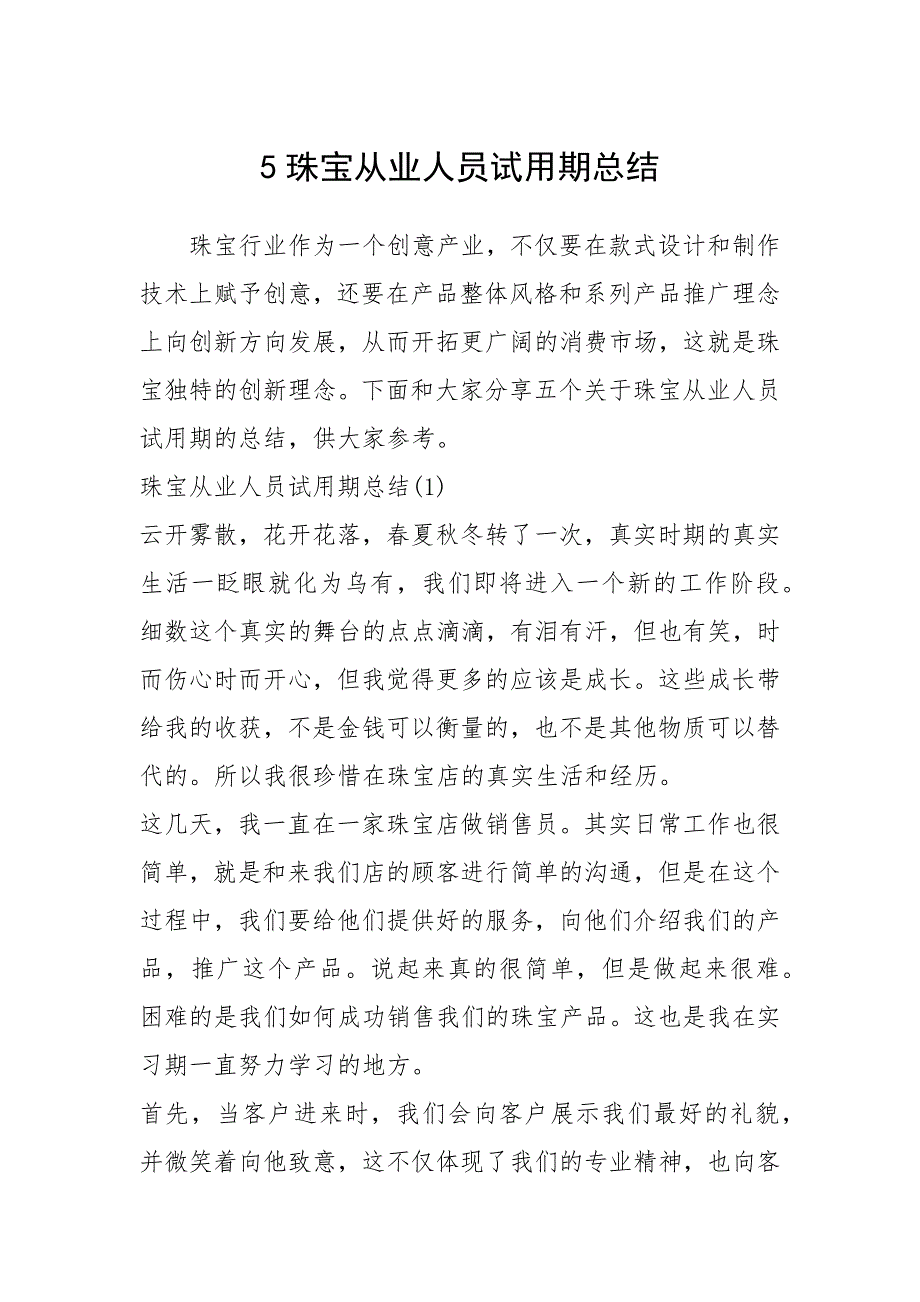 5 珠宝从业人员试用期总结
珠宝行业作为一个创意产业，不仅要在款式设计和制作
技术上赋予创意，还要在产品整体风格和系列产品推广理念
上向创新方向发展，从而开拓更广阔的消费市场，这就是珠
宝独特的创新理念。下面和大家分享五个关于珠宝从业人员
试用期的总结，供大家参考。
珠宝从业人员试用期总结(1)
云开雾散，花开花落，春夏秋冬转了一次，真实时期的真实
生活一眨眼就化为乌有，我们即将进入一个新的工作阶段。
细数这个真实的舞台的点点滴滴，有泪有汗，但也有笑，时
而伤心时而开心，但我觉得更多的应该是成长。这些成长带
给我的收获，不是金钱可以衡量的，也不是其他物质可以替
代的。所以我很珍惜在珠宝店的真实生活和经历。
这几天，我一直在一家珠宝店做销售员。其实日常工作也很
简单，就是和来我们店的顾客进行简单的沟通，但是在这个
过程中，我们要给他们提供好的服务，向他们介绍我们的产
品，推广这个产品。说起来真的很简单，但是做起来很难。
困难的是我们如何成功销售我们的珠宝产品。这也是我在实
习期一直努力学习的地方。
首先，当客户进来时，我们会向客户展示我们最好的礼貌，
并微笑着向他致意，这不仅体现了我们的专业精神，也向客